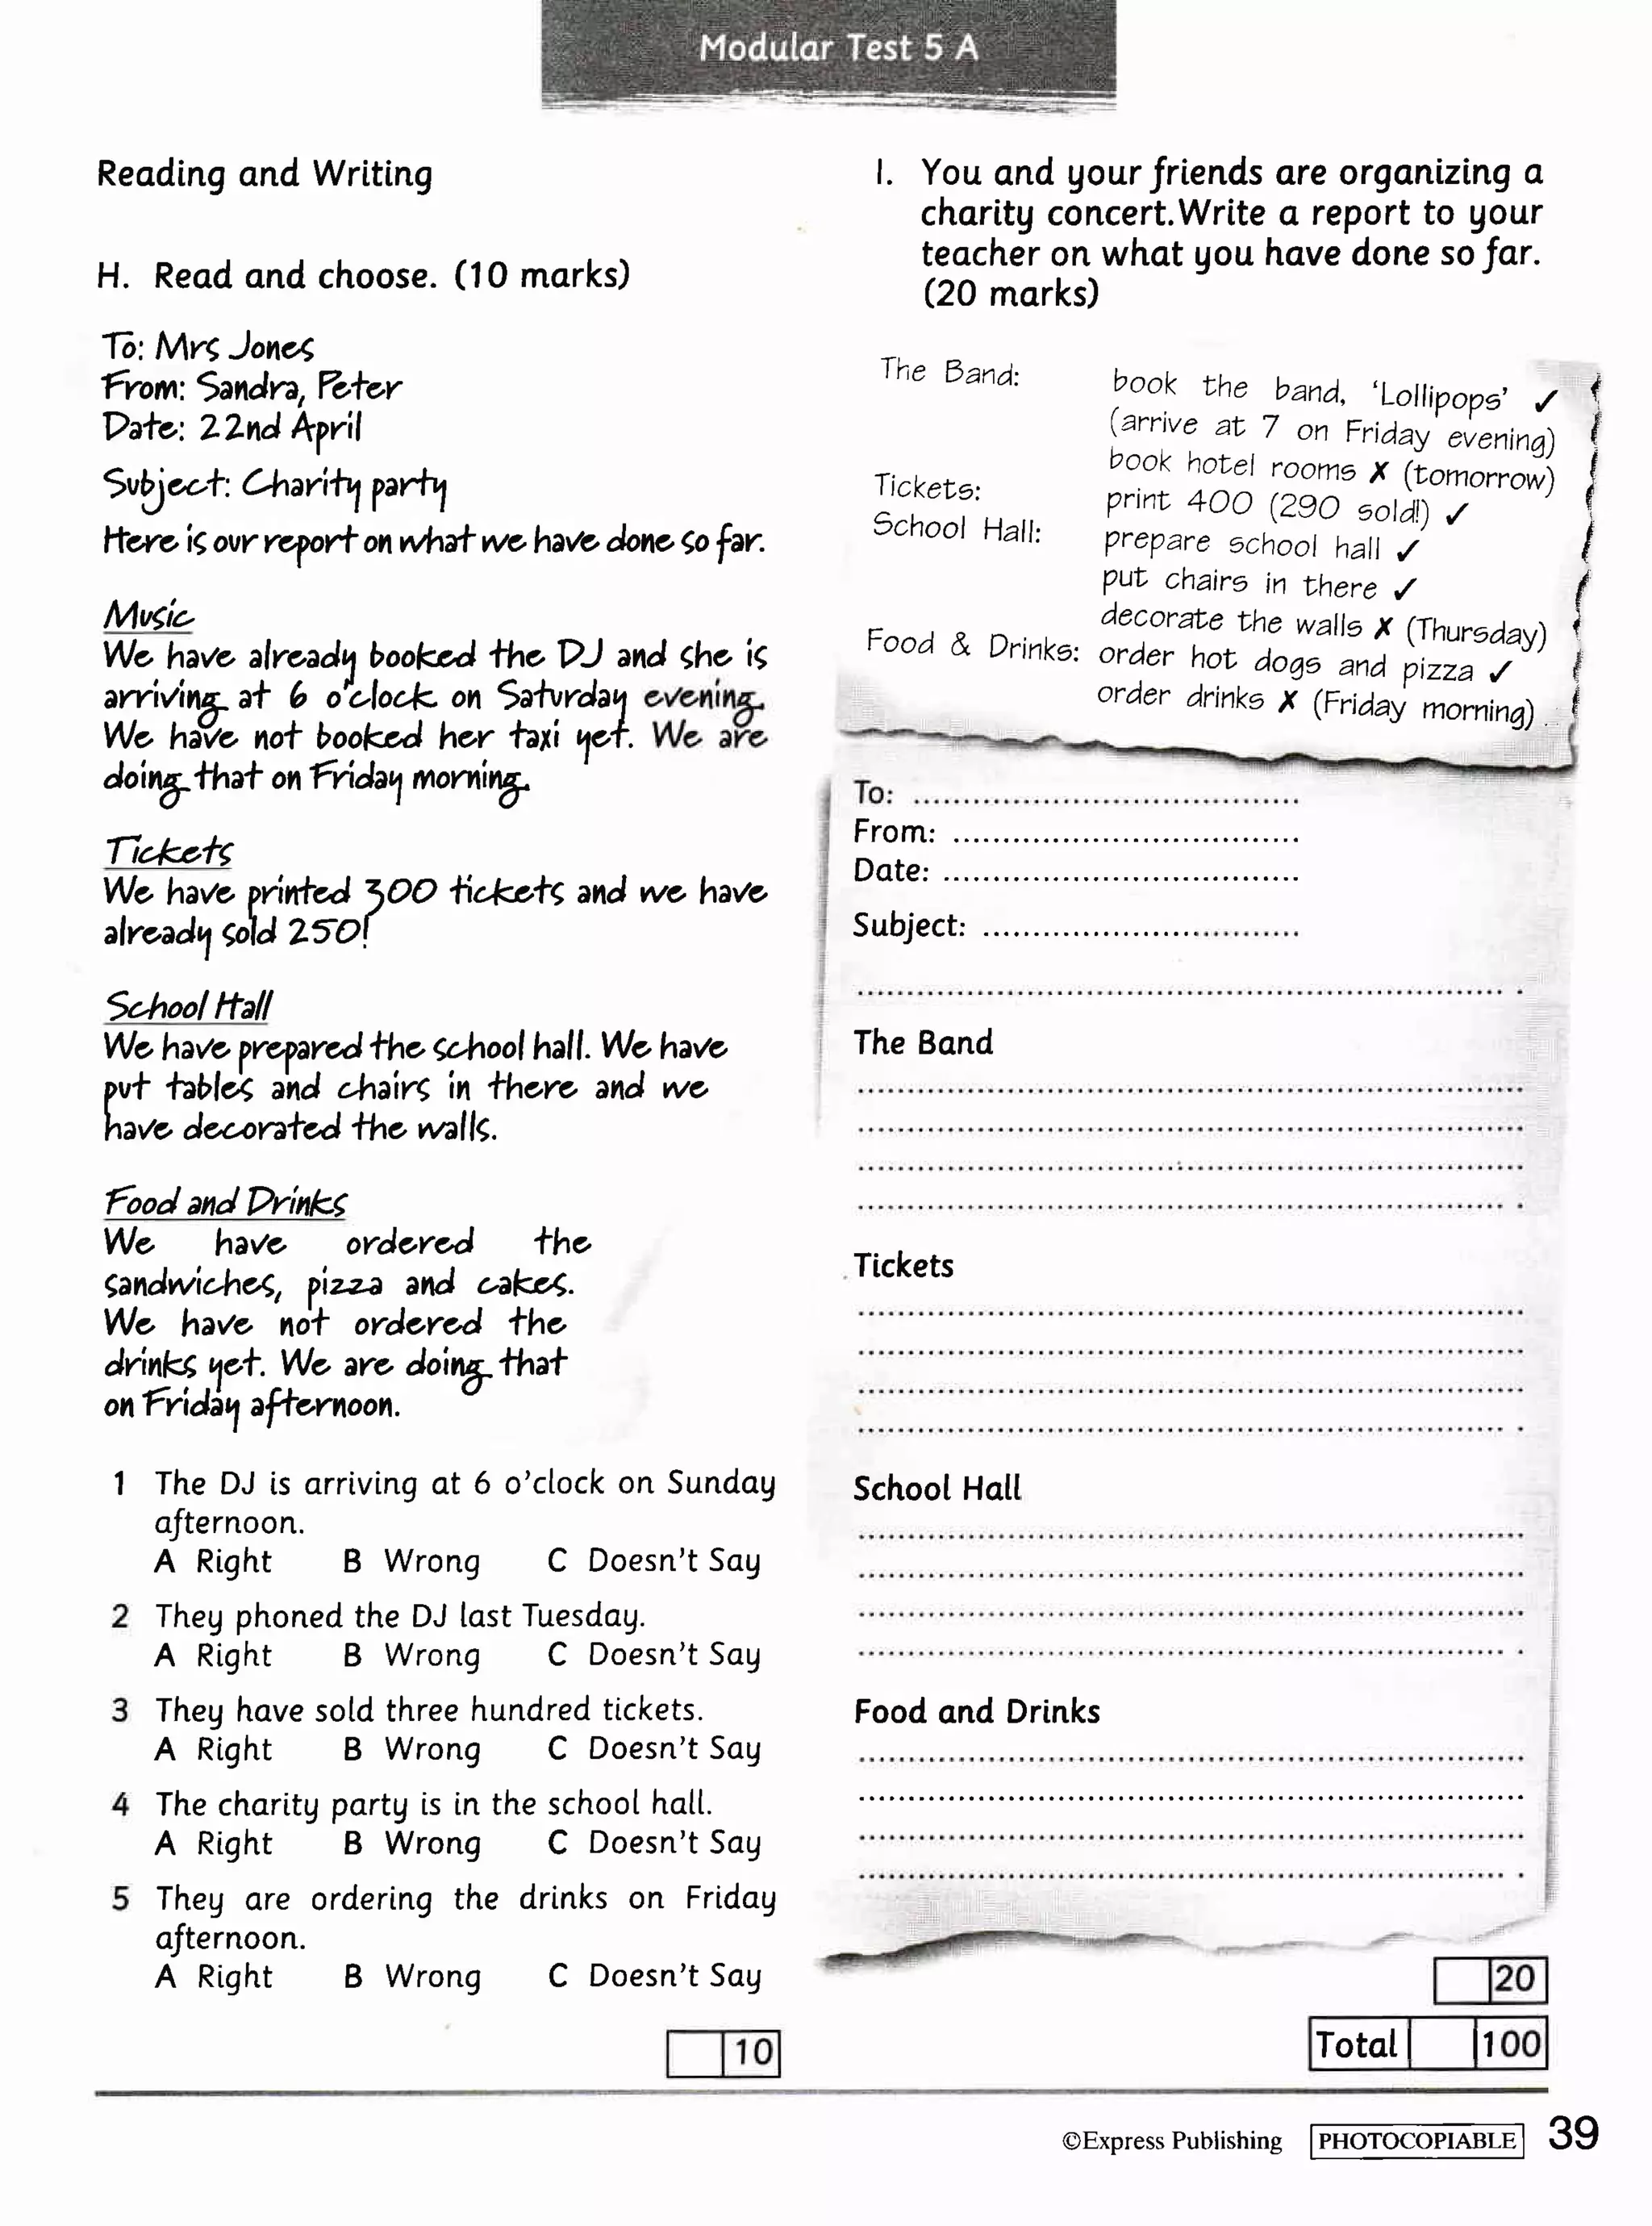 Modular Test 5 A
Reading and Writing
H. Read and choose. (10 marks)
To: Mrs Jones
From: Sandra, Peter
Date: 22nd April
Subject: Charity party
Here is our report on what we have done so far.
Music
We have already booked the DJ and she is
arriving at 6 o'clock on Saturday evening.
We have not booked her taxi yet. We are
doing that on Friday morning.
Tickets
We have printed 300 tickets and we have
already sold 250!
School Hall
We have prepared the school hall. We have
put tables and chairs in there and we
have decorated the walls.
Food and Drinks
We have ordered the
sandwiches, pizza and cakes.
We have not ordered the
drinks yet. We are doing that
on Friday afternoon.
1 The DJ is arriving at 6 o'clock on Sunday
afternoon.
A Right B Wrong C Doesn't Say
2 They phoned the DJ last Tuesday.
A Right B Wrong C Doesn't Say
3 They have sold three hundred tickets.
A Right B Wrong C Doesn't Say
4 The charity party is in the school hall.
A Right B Wrong C Doesn't Say
5 They are ordering the drinks on Friday
afternoon.
A Right B Wrong C Doesn't Say
10
I. You and your friends are organizing a
charity concert.Write a report to your
teacher on what you have done so far.
(20 marks)
The Band: book the band, 'Lollipops' ✓
(arrive at 7 on Friday evening)
book hotel rooms ✗ (tomorrow)
Tickets: print 400 (290 sold!) ✓
School Hall: prepare school hall ✓
put chairs in there ✓
decorate the walls ✗ (Thursday)
Food & Drinks: order hot dogs and pizza ✓
order drinks ✗ (Friday morning)
To: ........................................
From: ....................................
Date: .....................................
Subject: .................................
The Band
Tickets
School Hall
Food and Drinks
20
Total 100
©Express Publishing PHOTOCOPIABLE 39